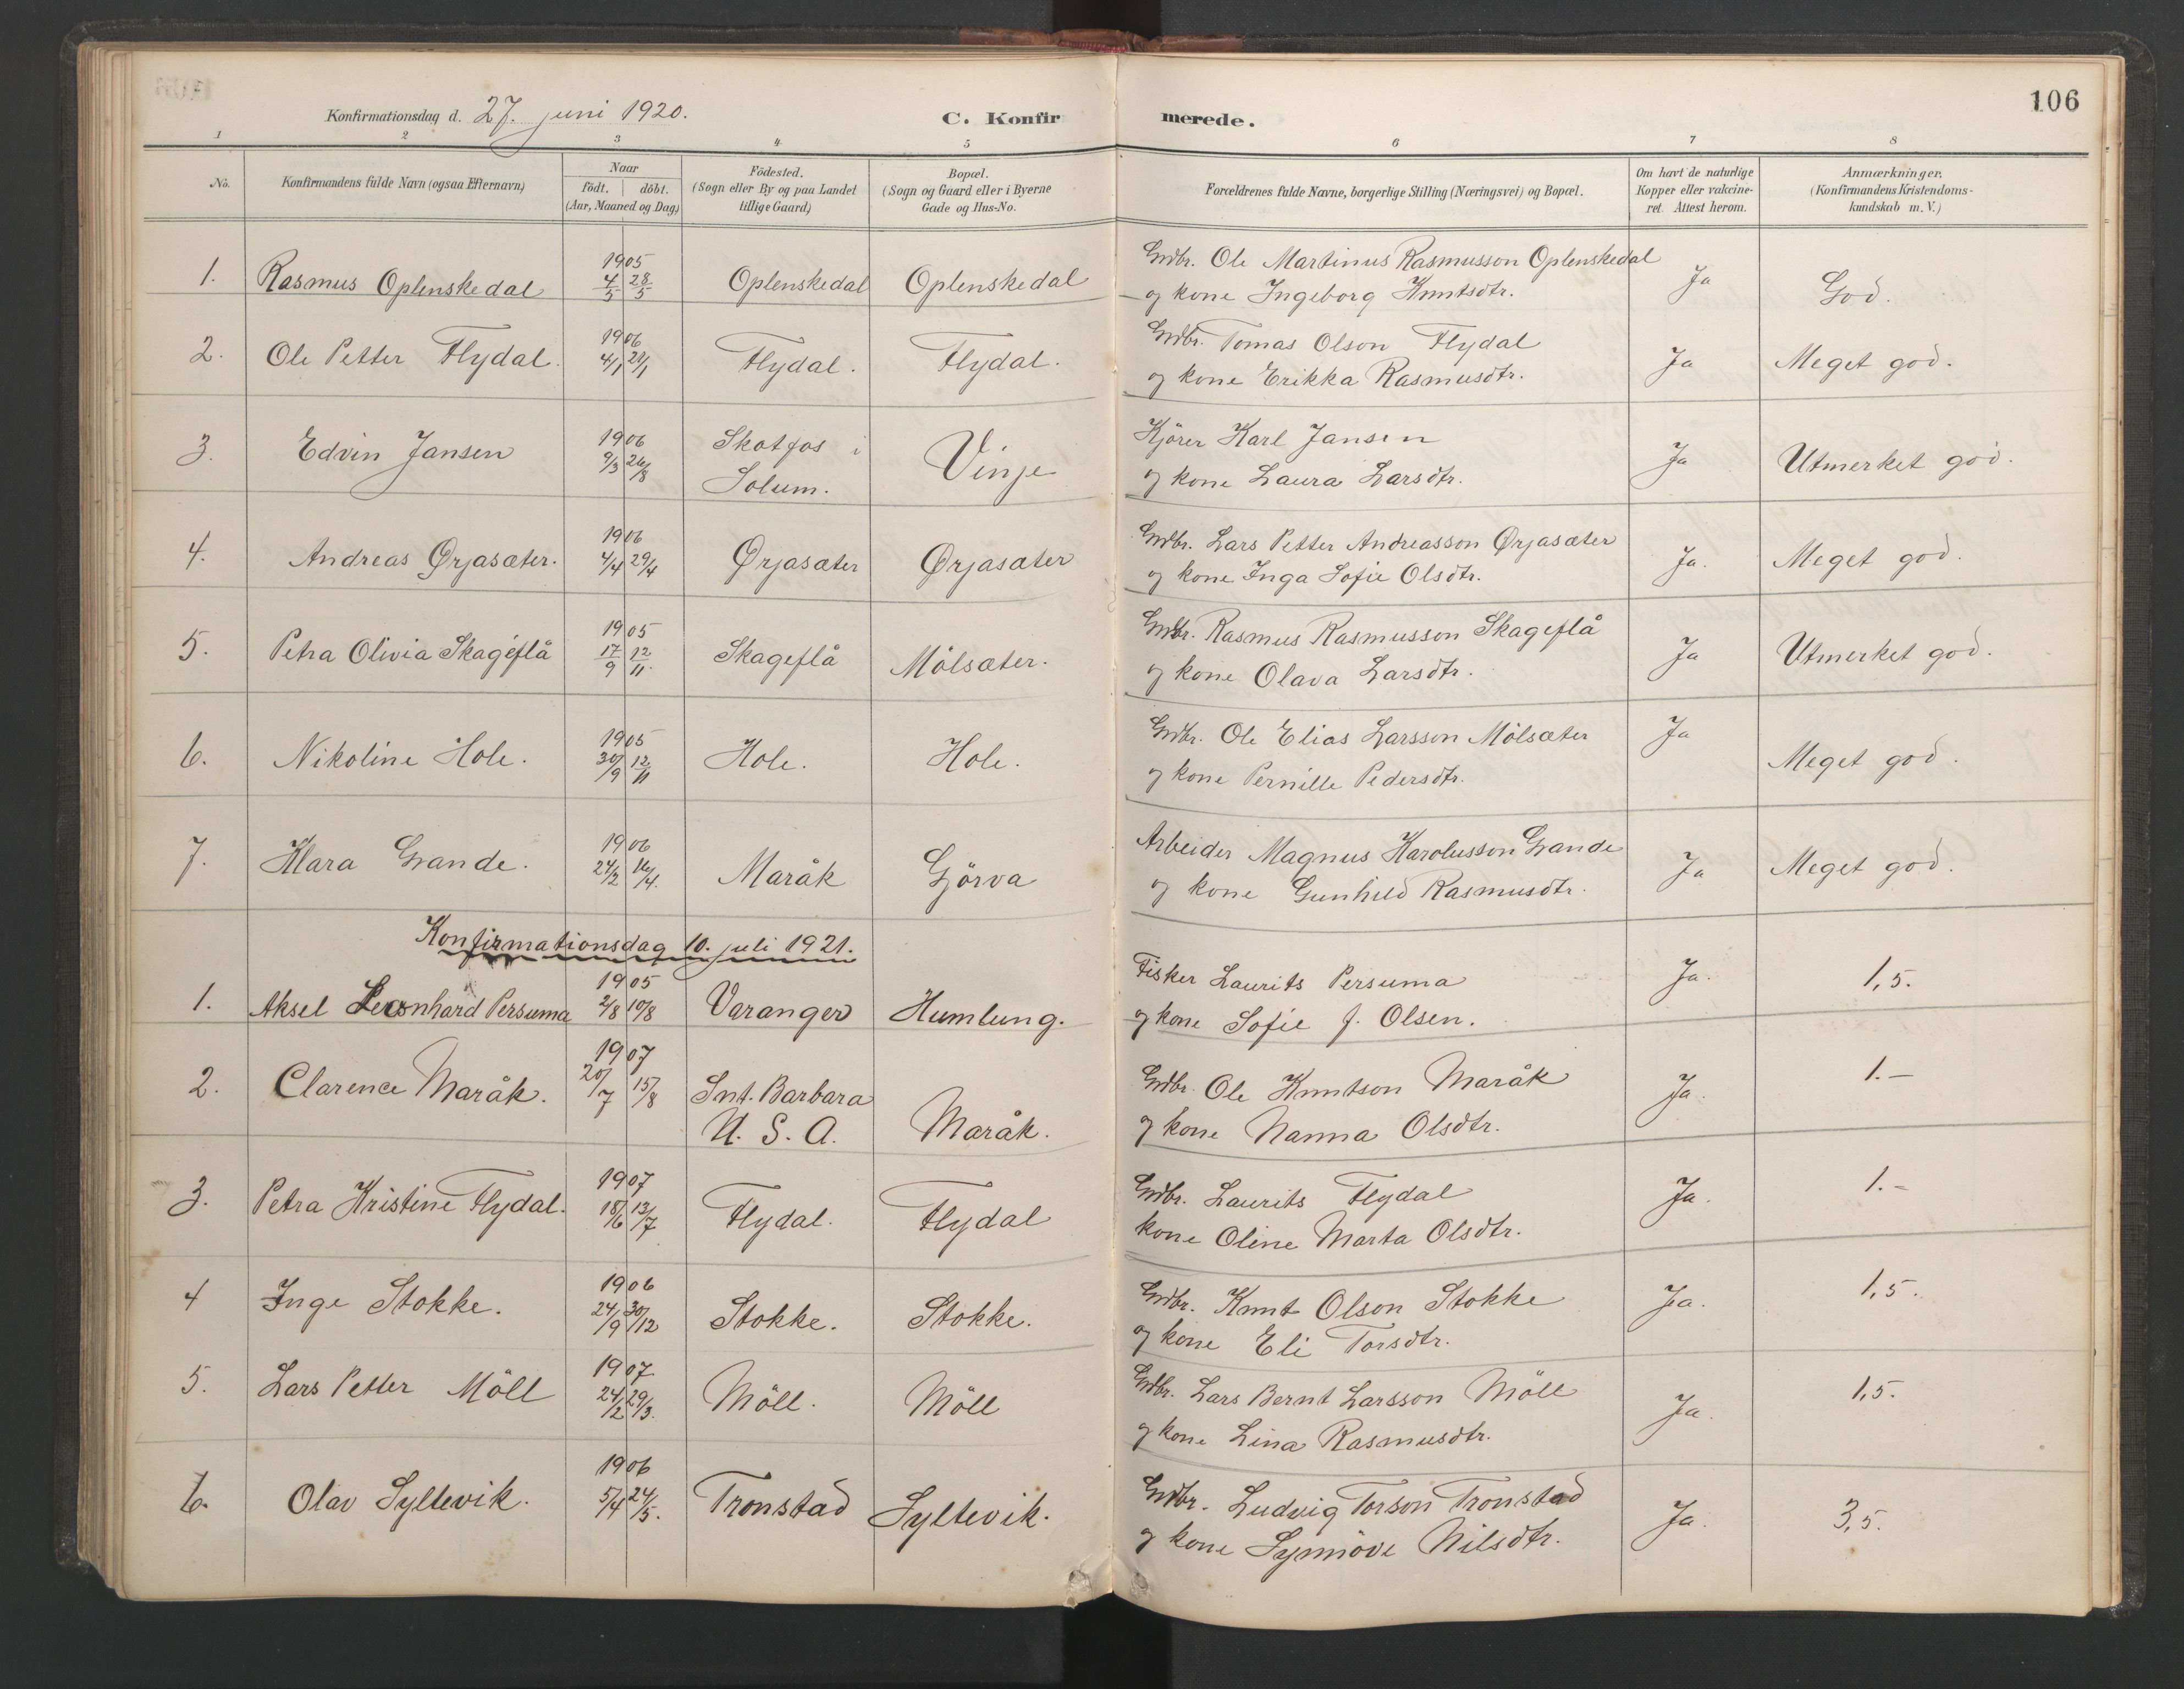 106
Konfirmationsdag d. 27. juni 1920.
C. Konfirmerede.
1 2 3 4 5 6 7 8
No.
Konfirmandens fulde Navn (ogsaa Efternavn)
Naar
födt. döbt.
(Aar, Maaned og Dag)
Födested.
(Sogn eller By og paa Landet
tillige Gaard)
Bopæl.
(Sogn og Gaard eller i Byerne
Gade og Hus-No.
Forældrenes fulde Navne, borgerlige Stilling (Næringsvei) og Bopæl.
Om havt de naturlige
Kopper eller vakcine-
ret. Attest herom.
Anmærkninger.
(Konfirmandens Kristendoms-
kundskab m. V.)
1. Rasmus Oplenskedal 1905 4/5 28/5 Oplenskedal Oplenskedal
Grdbr. Ole Martinus Rasmusson Oplenskedal
og kone Ingeborg Knutsdtr.
Ja God.
2. Ole Petter Flydal. 1906 4/1 21/1 Flydal. Flydal.
Grdbr. Tomas Olson Flydal
og kone Erikka Rasmusdtr.
Ja Meget god.
3. Edvin Jansen 1906 9/3 26/8 Skotfos i
Solum.
Vinje
Kjörer Karl Jansen
og kone Laura Larsdtr.
Ja Utmerket god.
4. Andreas Ørjasæter. 1906 4/4 29/4 Ørjasæter Ørjasæter
Grdbr. Lars Petter Andreasson Ørjasæter
og kone Inga Sofie Olsdtr.
Ja. Meget god.
5. Petra Olivia Skageflå 1905 17/9 12/11. Skageflå Mölsæter.
Grdbr. Rasmus Rasmusson Skageflå
og kone Olava Larsdtr.
Ja Utmerket god.
6. Nikoline Hole. 1905 30/9 12/11 Hole. Hole.
Grdbr. Ole Elias Larsson Mölsæter
og kone Pernille Pedersdtr.
Ja Meget god.
7. Klara Grande. 1906 24/2 16/4. Maråk Gjörva
Arbeider Magnus Karolusson Grande
og kone Gunhild Rasmusdtr.
Ja Meget god.
Konfirmationsdag 10. juli 1921.
1. Aksel Leonhard Persuma 1905 2/8 10/8 Varanger Humlung.
Fisker Laurits Persuma
og kone Sofie J. Olsen.
Ja. 1,5.
2. Clarence Maråk. 1907 20/7 15/8 Snt. Barbara
U. S. A.
Maråk.
Grdbr. Ole Knutson Maråk
og kone Nanna Olsdtr.
Ja. 1.-
3. Petra Kristine Flydal. 1907 18/6 13/7 Flydal. Flydal
Grdbr. Laurits Flydal
kone Oline Marta Olsdtr.
Ja. 1.-
4 Inge Stokke. 1906 24/9 30/12 Stokke. Stokke.
Grdbr. Knut Olson Stokke
og kone Eli Torsdtr.
Ja. 1,5.
5. Lars Petter Möll 1907 24/2 29/3. Möll. Möll
Grdbr. Lars Bernt Larsson Möll
og kone Lina Rasmusdtr.
Ja. 1,5.
6. Olav Syltevik. 1906 5/4 24/5. Tronstad Syltevik.
Grdbr. Ludvig Torson Tronstad
og kone Synnöve Nilsdtr.
Ja. 3,5.